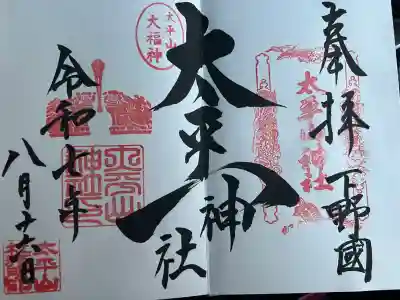 奉拝 下野國
太平山神社
太平山神社
太平山
大福神
令和七年
八月十六日
太平山